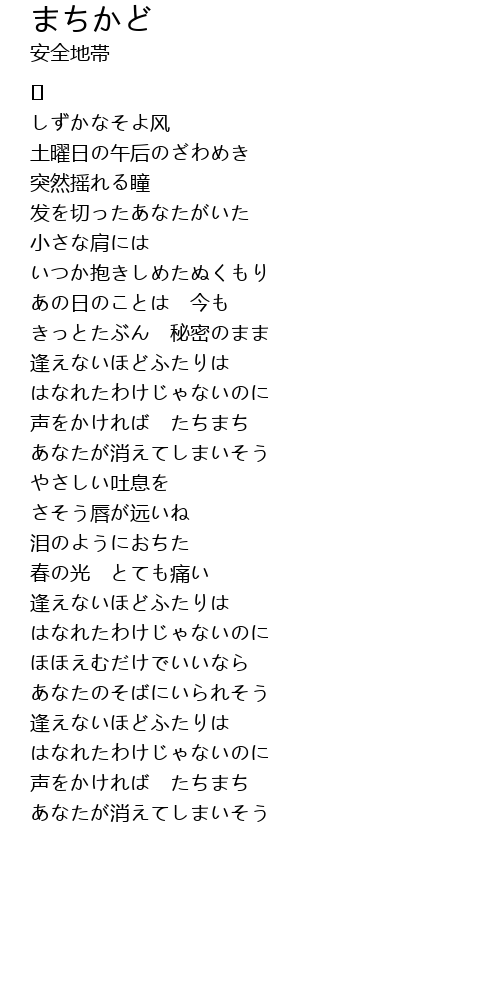 まちかど
安全地帯
しずかなそよ风
土曜日の午后のざわめき
突然揺れる瞳
发を切ったあなたがいた
小さな肩には
いつか抱きしめたぬくもり
あの日のことは　今も
きっとたぶん　秘密のまま
逢えないほどふたりは
はなれたわけじゃないのに
声をかければ　たちまち
あなたが消えてしまいそう
やさしい吐息を
さそう唇が远いね
泪のようにおちた
春の光　とても痛い
逢えないほどふたりは
はなれたわけじゃないのに
ほほえむだけでいいなら
あなたのそばにいられそう
逢えないほどふたりは
はなれたわけじゃないのに
声をかければ　たちまち
あなたが消えてしまいそう